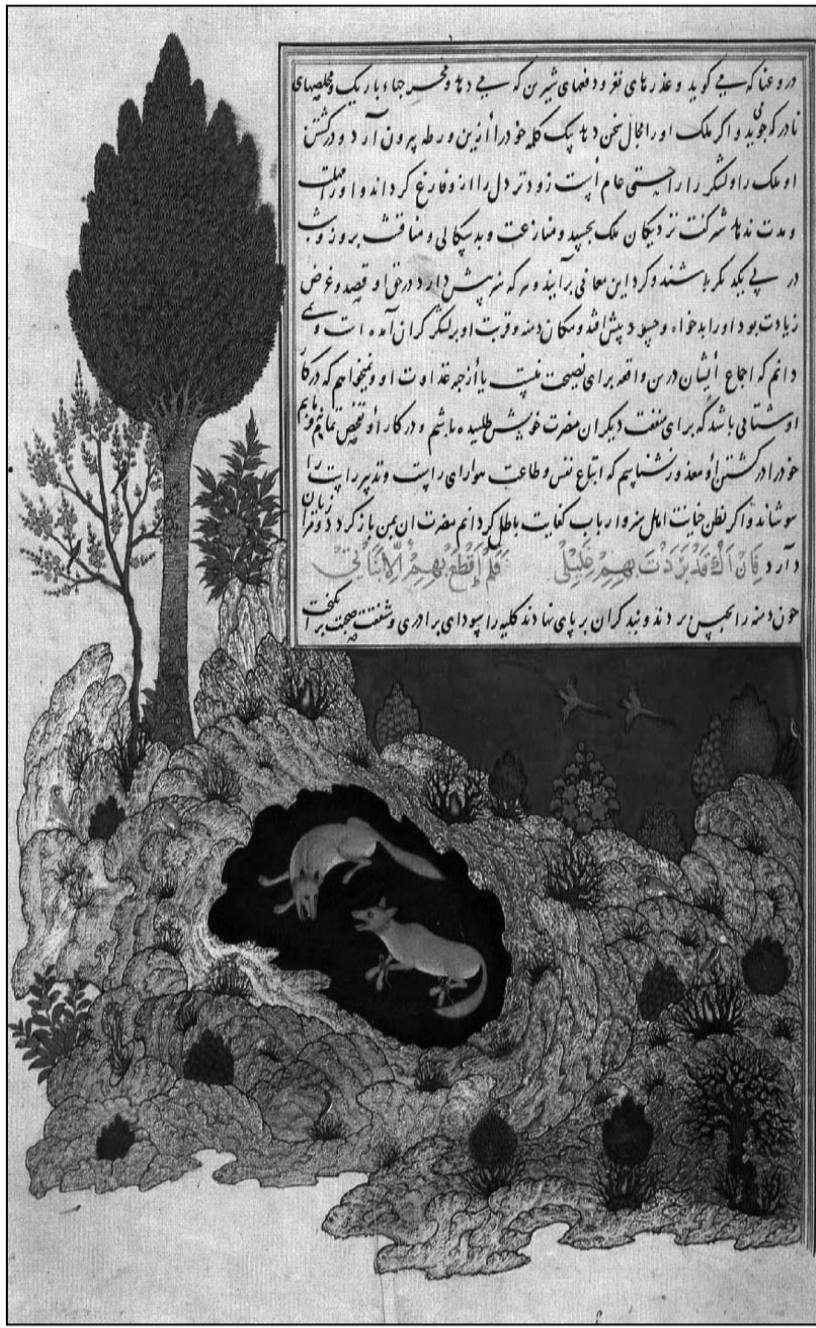 دروغها که می گوید و عذرهای نغز و دفعهای شیرین که می دهد و مخرجهاء باریک و مخلصهای
نادر که جوید و اگر ملک او را مجال سخن دهد بیک کلمه خود را ازین ورطه بیرون آرد و در کشتن
او ملک را و لشکر را راحتی عام است زودتر دل را ازو فارغ گرداند و او را مهلت
و مدت ندهد شیر گفت نزدیکان ملک بحسد و منازعت و بدسگالی و مناقشت بروز و شب
در پی یکدیگر باشند و گرد این معانی برآیند و هر که هنر بیش دارد در حق او قصد و غرض
زیادت بود و او را بدخواه و حسود بیش افتد و مکان دمنه و قربت او بر لشکر گران آمده است و نمی
دانم که اجماع ایشان درین واقعه برای نصیحت نیست یا از جهة عداوت او و نمیخواهم که در کار
او شتابی باشد که برای منفعت دیگران مضرت خویش طلبیده باشم و در کار او تفحص تمام نفرمایم
خود را در کشتن او معذور نشناسم که اتباع نفس و طاعت هوا رای راست و تدبیر راست را
بپوشاند و اگر بظن خیانت اهل هنر و ارباب کفایت باطل گردانم مضرت آن بمن بازگردد و مرا زیان
دارد فَإِنْ أَكُ قَدْ بَرَدْتُ بِهِمْ غَلِيلِى فَلَمْ أَقْطَعْ بِهِمْ إِلَّا بَنَانِى
چون دمنه را بحبس بردند و بند گران بر پای نهادند کلیله را سودای برادری و شفقت صحبت برانگیخت